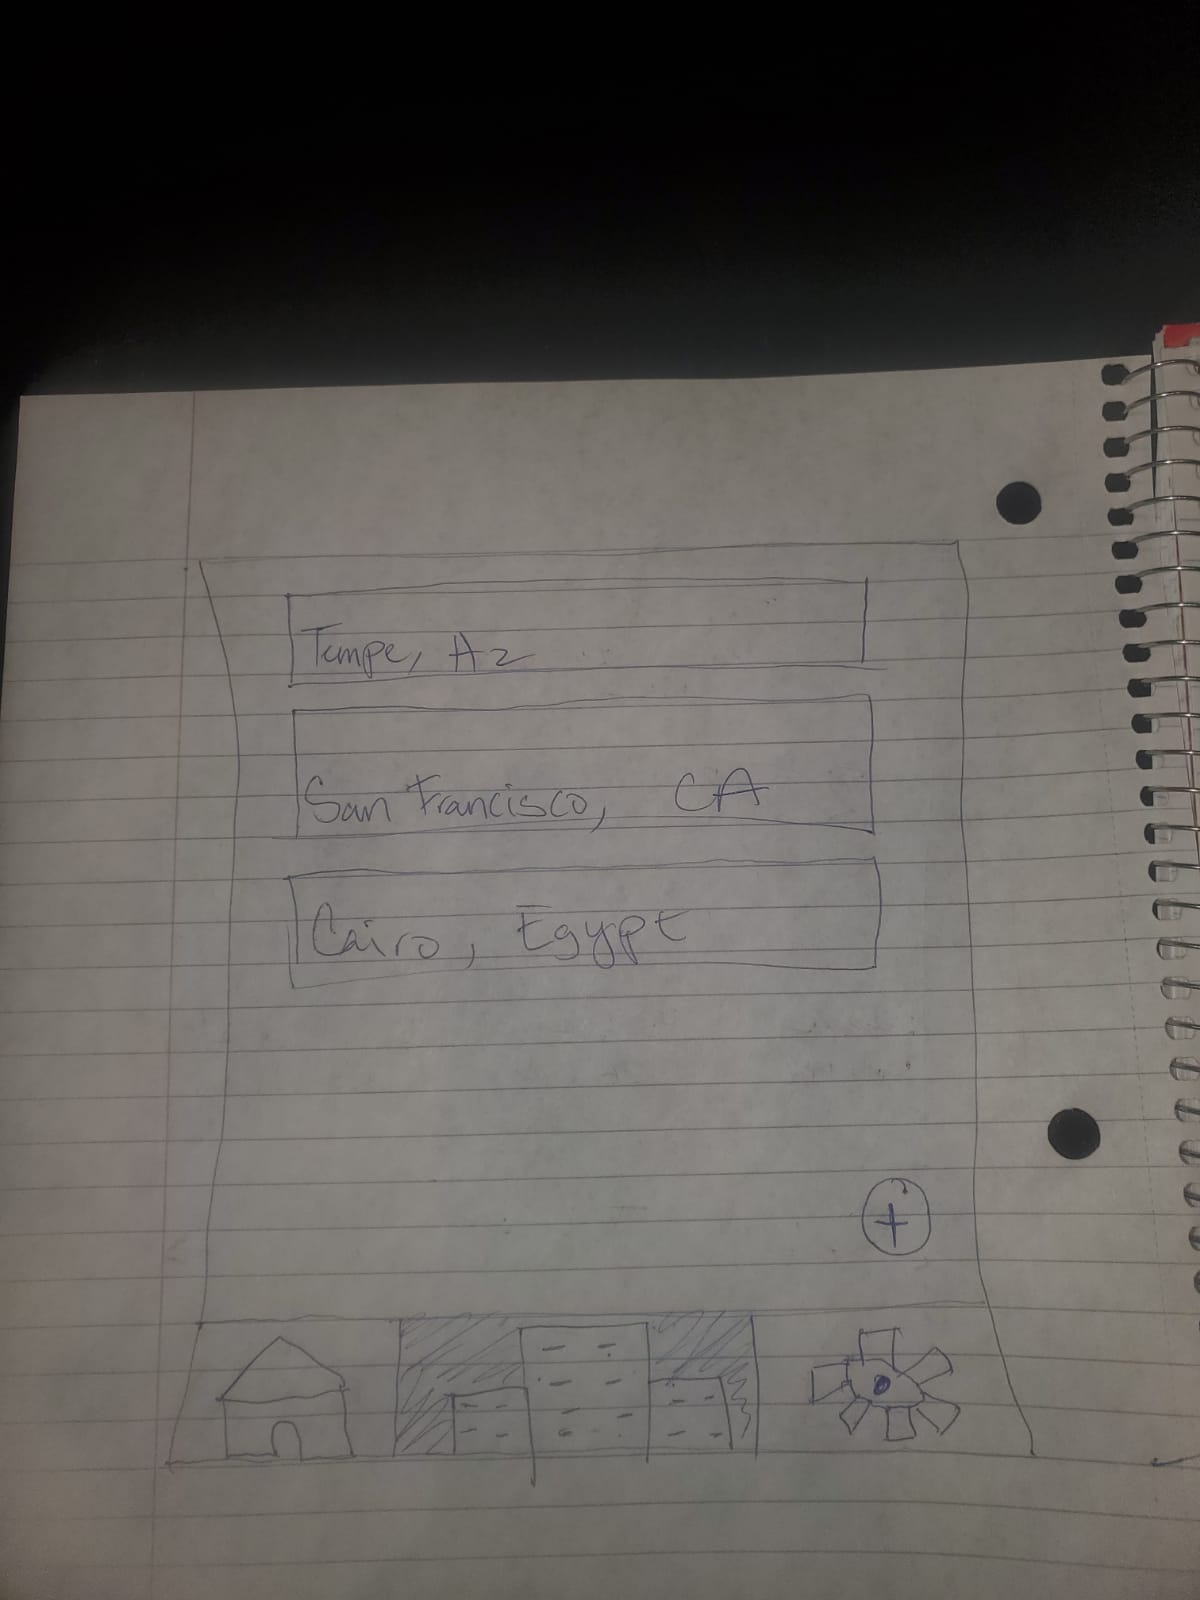 Tempe, Az
San Francisco, CA
Cairo, Egypt
+